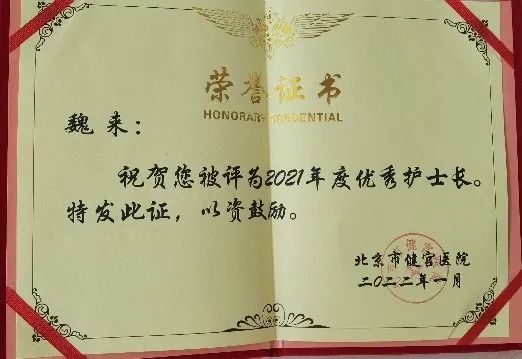 荣誉证书
HONORARY CREDENTIAL
魏来：
祝贺您被评为2021年度优秀护士长。
特发此证，以资鼓励。
北京市健宫医院
二〇二二年一月